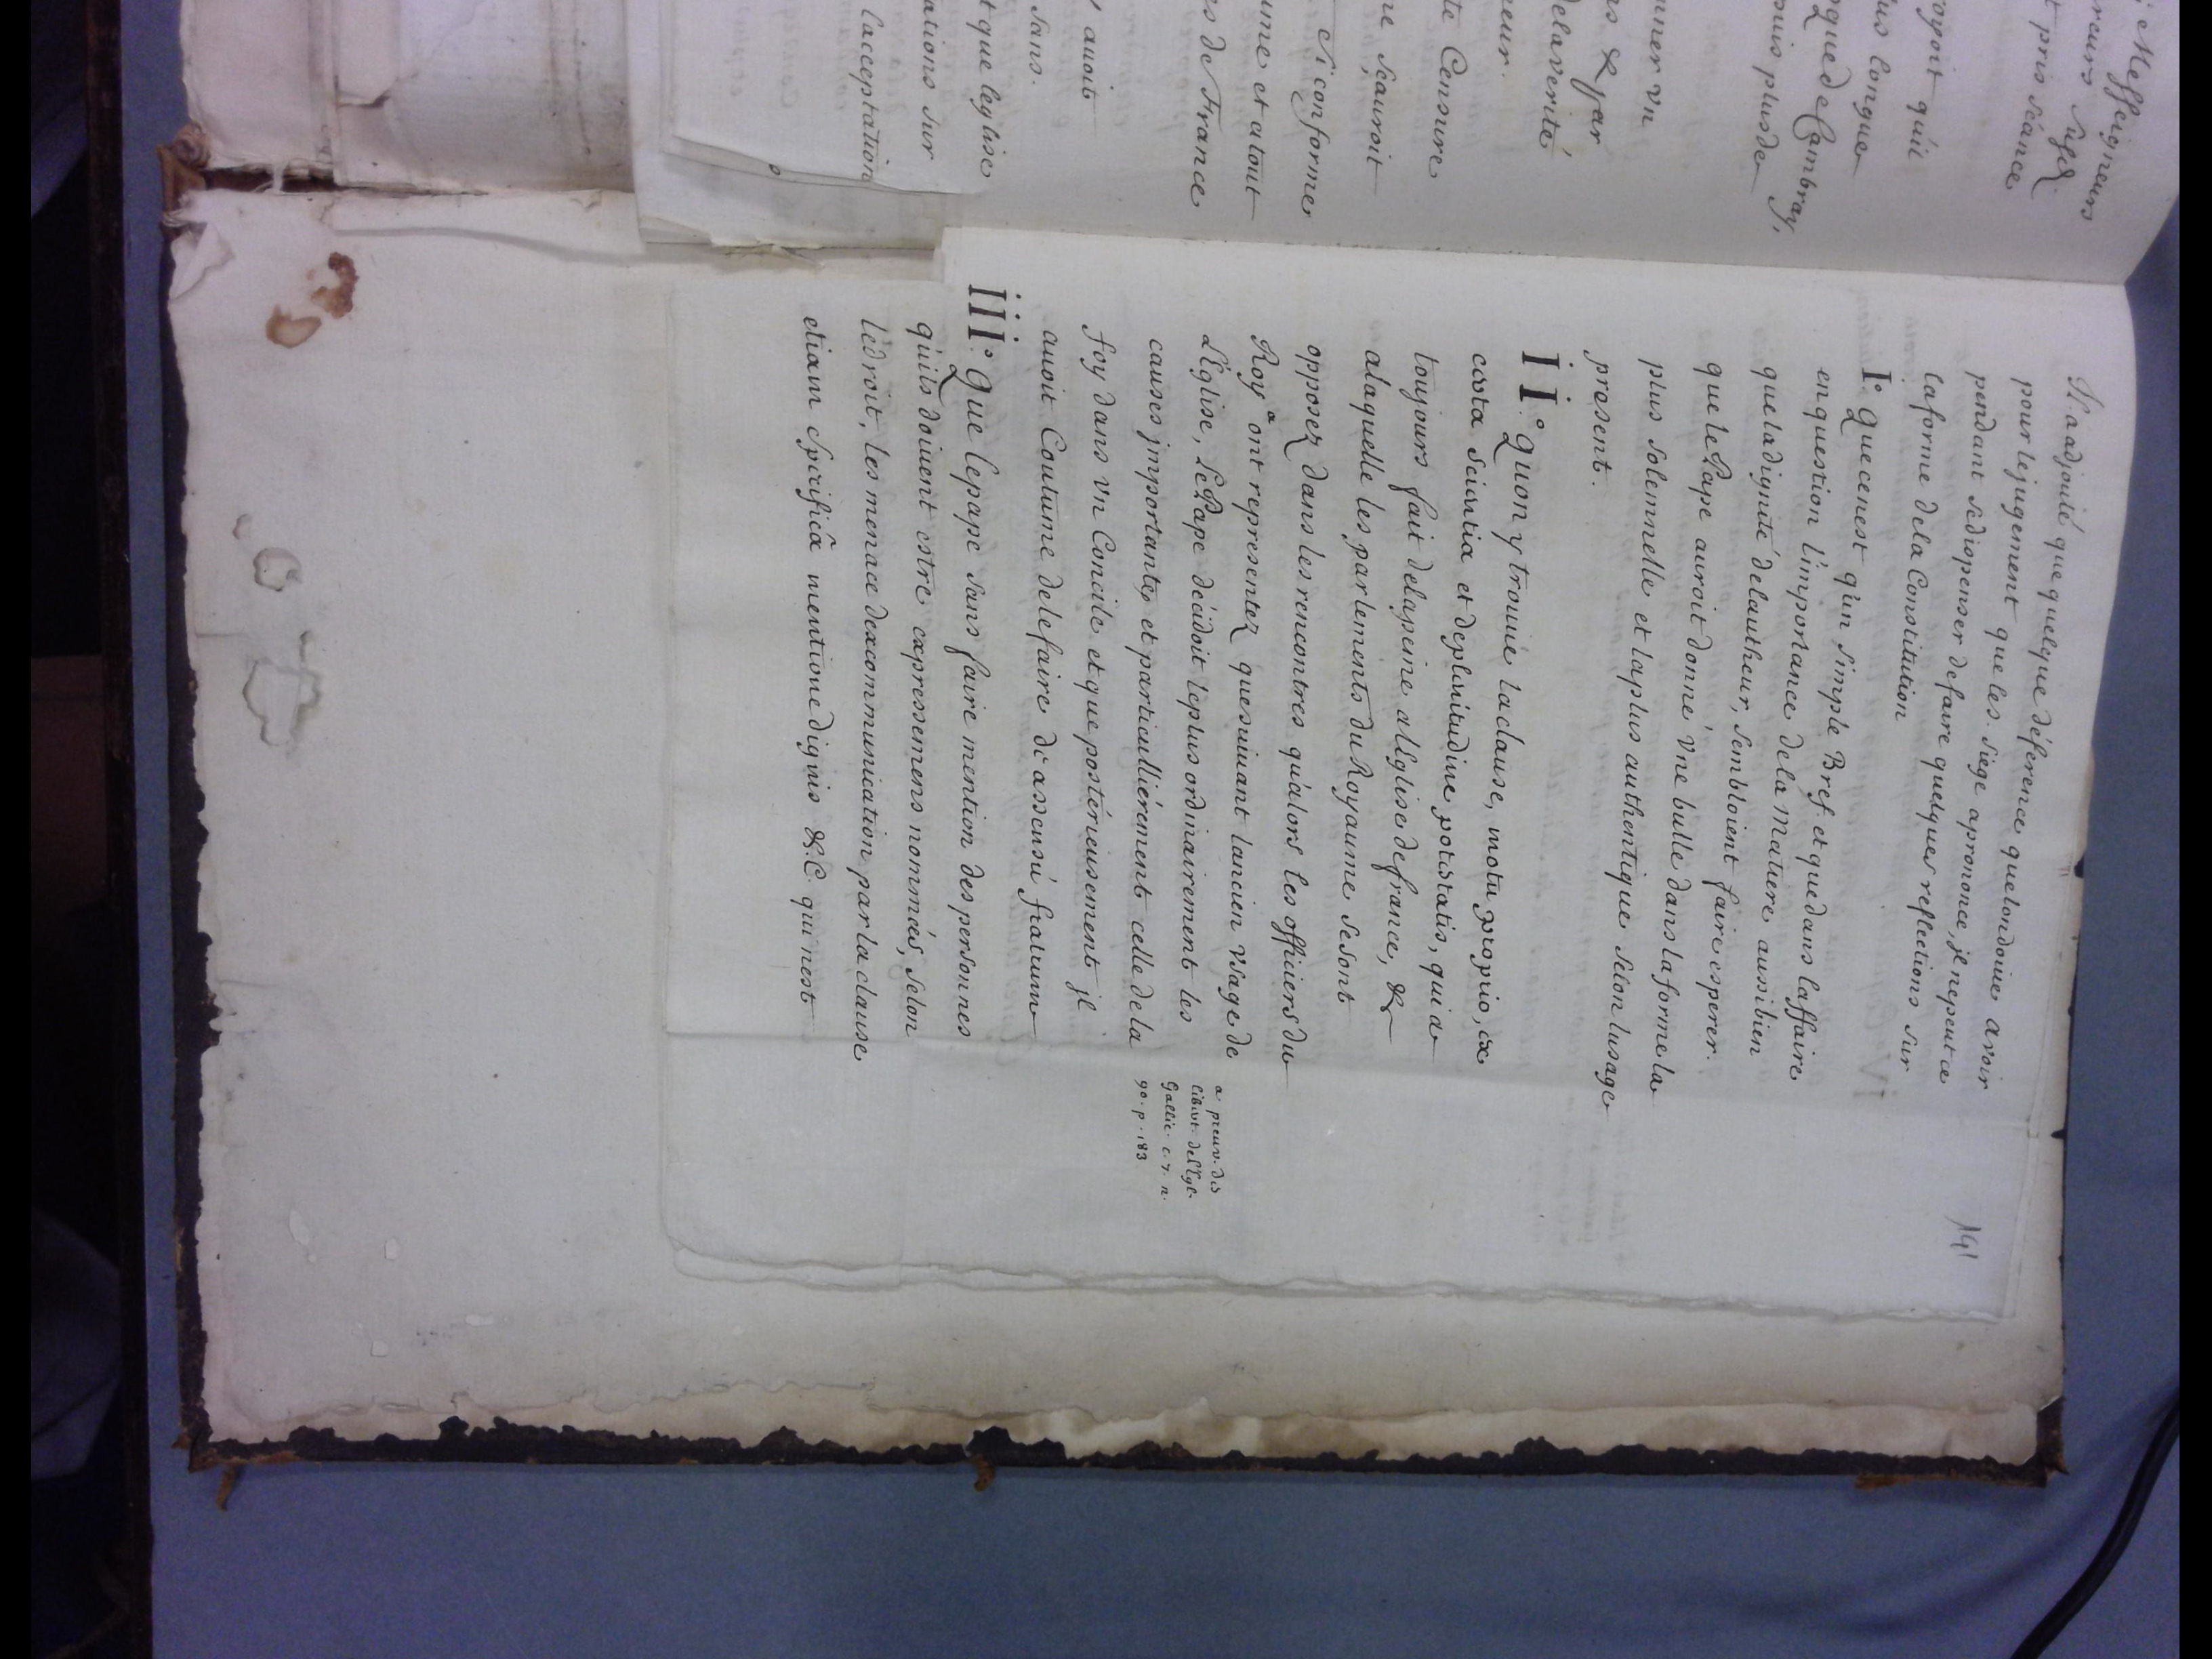 ; Messeigneurs
t pris séance
royoit qu'il
lus longue
que de Cambray,
puis plus de
nner un
& par
de la verité
eur.
te Censure
ne sçauroit
N conforme
ume et a tout
s de France
auoit
sans.
t que leglise
ations sur
l'acceptation
141
Il a adjouté que quelque déference que lon doive avoir
pour le jugement que le s. siége a prononcé, il ne peut ce
pendant se dispenser de faire quelques reflections sur
la forme de la Constitution
I.° Que ce n'est qu'un simple Bref et que dans l'affaire
en question l'importance de la matiere aussi bien
que la dignité de l'autheur, sembloient faire esperer.
que le Pape auroit donné vne bulle dans la forme la
plus solemnelle et la plus authentique selon lusage
present.
II.° quon y trouue la clause, motu proprio, ex
certa scientia et deplenitudine potestatis, qui a
toujours fait de la peine a l'Eglise de france, &
a laquelle les parlements du Royaume se sont
opposez dans les rencontres qu'alors les officiers du
Roy a ont representez que suiuant lancien vsage de
L'Eglise, Le Pape décidoit le plus ordinairement les
causes jmportantes et particulliérement celle de la
foy dans vn Concile et que postérieusement jl
auoit Coutume de le faire de assensu fratrum
a preuv. des
libert. de l'Egl.
Gallic. c. 7. n.
90. p. 183
III.° Que le pape sans faire mention des personnes
qu'ils doiuent estre expressemens nommés, selon
le droit, les menace dexcommunication par la clause
etiam specificâ mentione dignis &.C. qui n'est